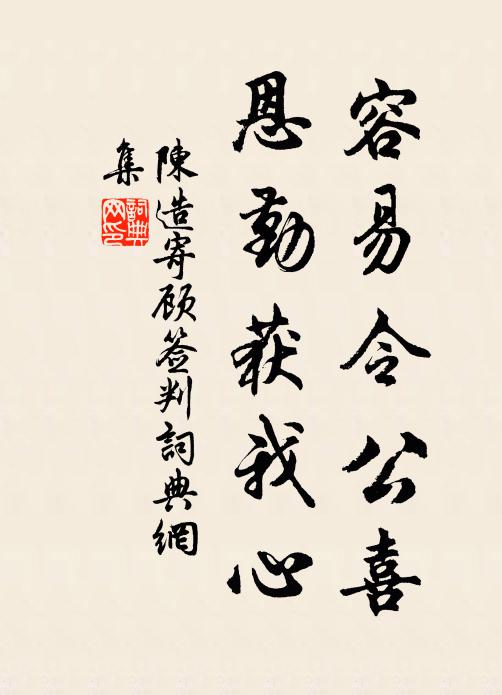 容易令公喜
恩勤获我心
陳造寄顾签判詞典網
集
詞典網印